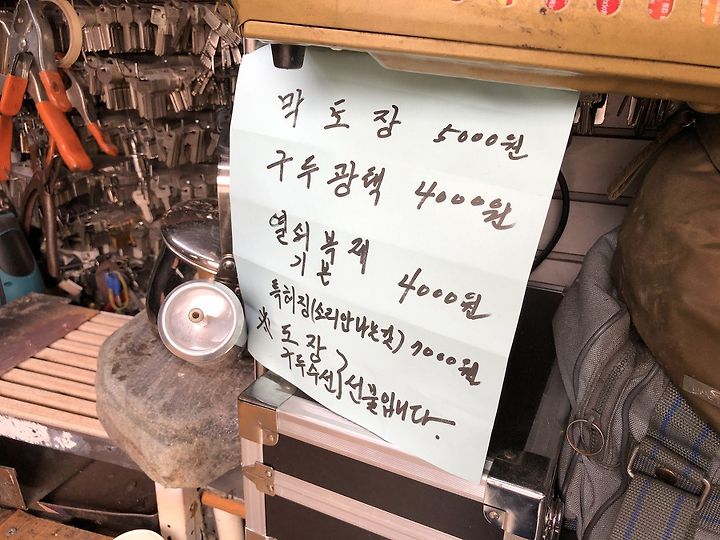 막 도 장 5000원
구두광택 4000원
열쇠복제
기본 4000원
특허징(소리안나는것) 7000원
※ 도장
구두수선) 선불입니다.